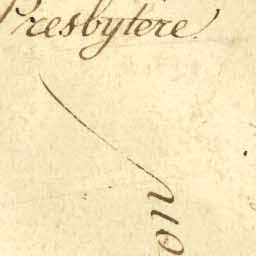 Presbytere.
on